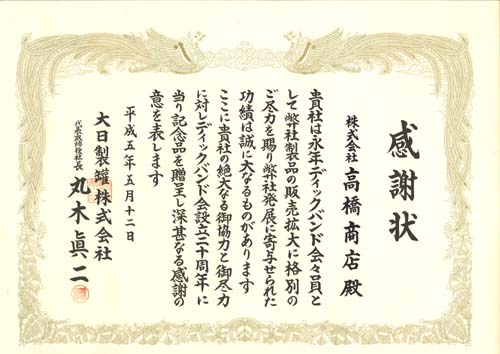 感謝状
株式会社 高橋商店 殿
貴社は永年ディックバンド会々員と
して弊社製品の販売拡大に格別の
ご尽力を賜り弊社発展に寄与せられた
功績は誠に大なるものがあります
ここに貴社の絶大なる御協力と御尽力
に対しディックバンド会設立二十周年に
当り記念品を贈呈し深甚なる感謝の
意を表します
平成五年五月十二日
大日製罐株式会社
代表取締役社長 丸木眞二